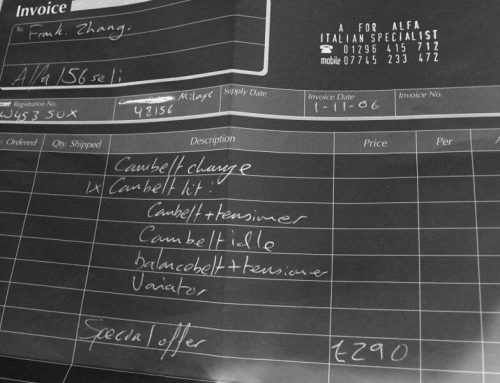 Invoice
To: Frank. Zhang.
A FOR ALFA
ITALIAN SPECIALIST
☎ 01296 415 712
mobile 07745 233 472
Alfa 156 seli
Registration No.
Milage
Supply Date
Invoice Date
Invoice No.
W453 SUX
48156
1-11-06
Ordered
Qty. Shipped
Description
Price
Per
Cambelt change
1x Cambelt kit:
Cambelt + tensioner
Cambelt idle
balancebelt + tensioner
Variator
Special offer £290